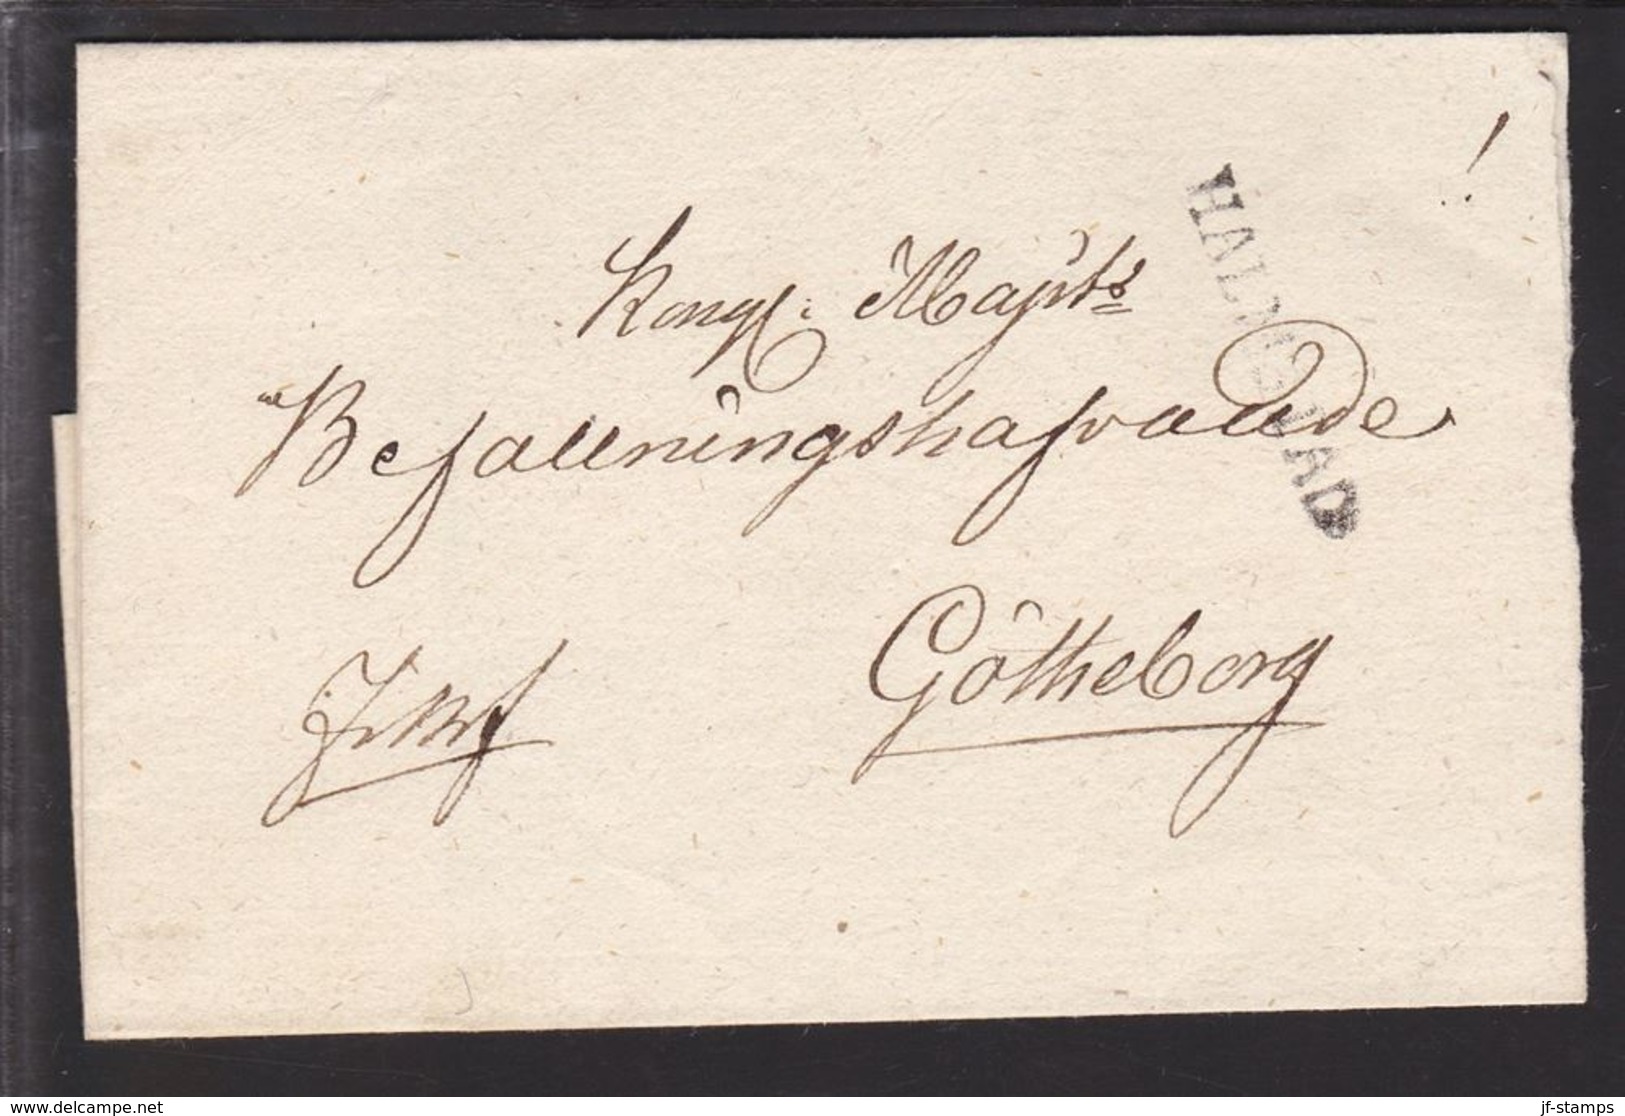 HALMSTAD
Kongl: Maÿts
Befallningshafvande
Götheborg
www.delcampe.net
jf-stamps